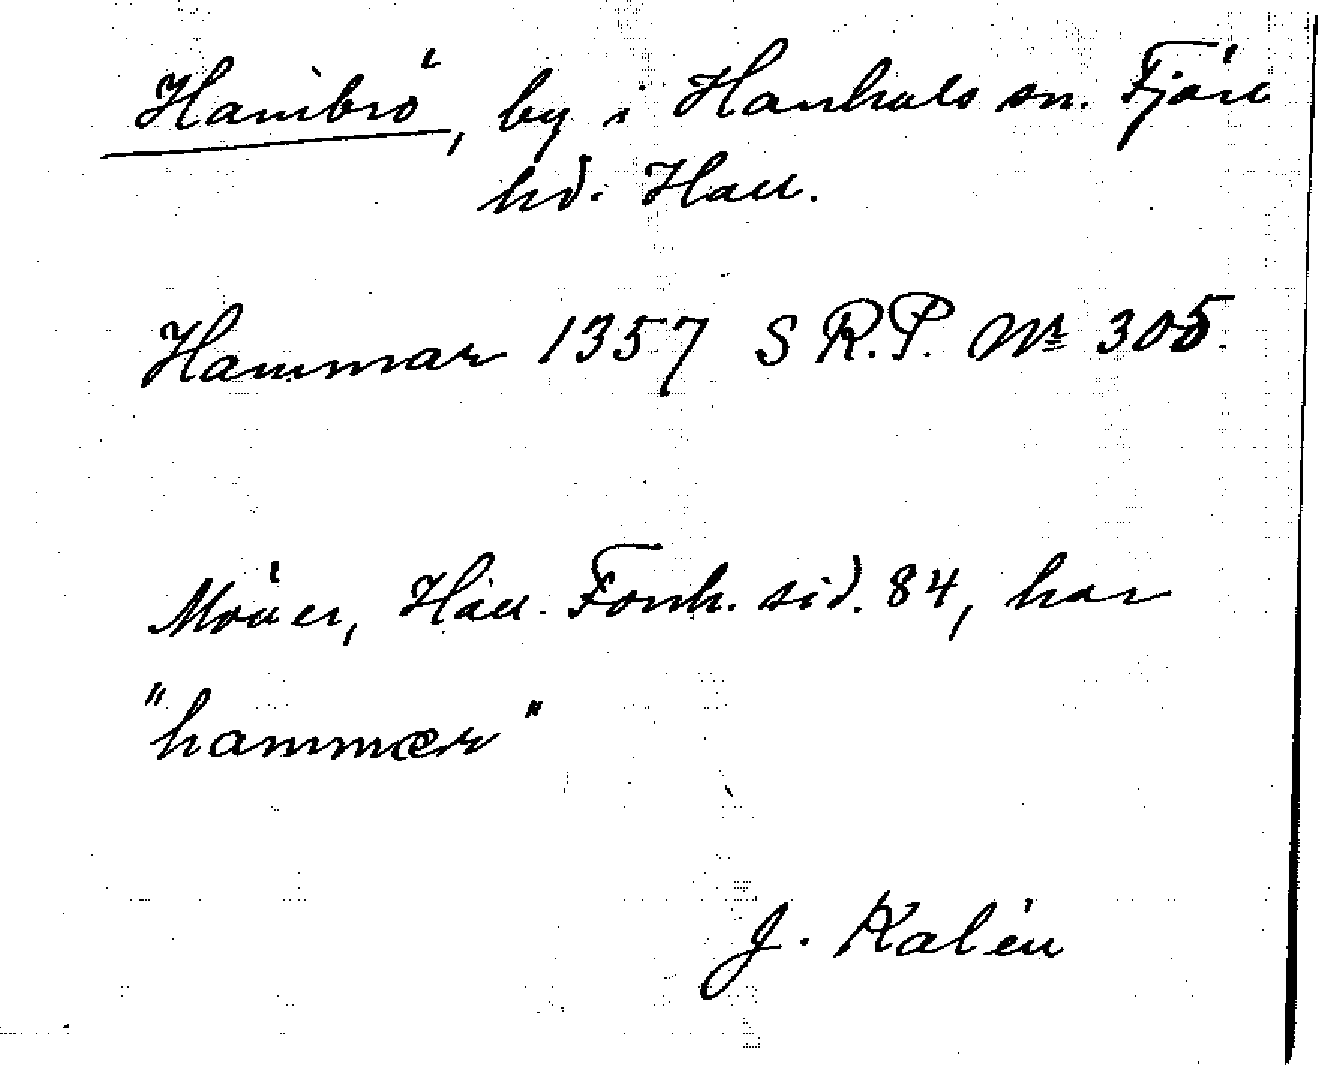 Hambrö, by i Hanhals sn. Fjäre
hd. Hall.
Hammar 1357 S R.P. Nr 305.
Möller, Hall. Fornh. sid. 84, har
"hammær"
J. Kalén